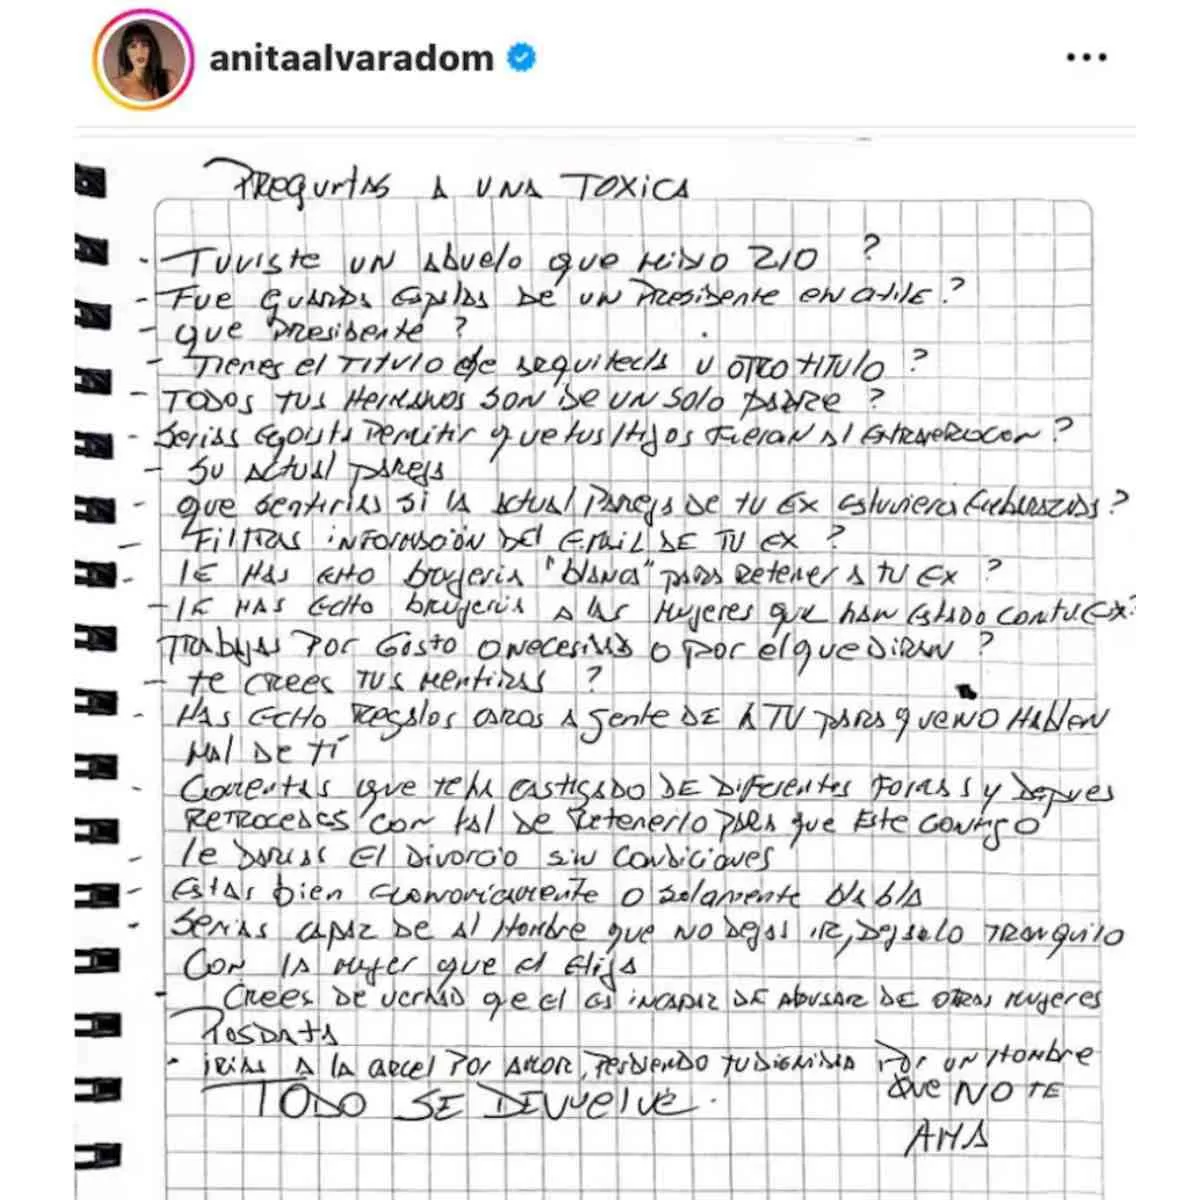 anitaalvaradom
PREGUNTAS A UNA TOXICA
- TUVISTE UN ABUELO QUE MIDIO 210 ?
- FUE GUARDA ESPALDAS DE UN PRESIDENTE EN CHILE ?
- QUE PRESIDENTE ?
- TIENES EL TITULO DE ARQUITECTA U OTRO TITULO ?
- TODOS TUS HERMANOS SON DE UN SOLO PADRE ?
- SERIAS EGOISTA PERMITIR QUE TUS HIJOS FUERAN AL
- SU ACTUAL PAREJA
- QUE SENTIRIAS SI LA ACTUAL PAREJA DE TU EX ESTUVIERA EMBARAZADA ?
- FILTRAS INFORMACIÓN DEL EMAIL DE TU EX ?
- LE HAS ECHO BRUJERIA "BLANCA" PARA RETENER A TU EX ?
- LE HAS ECHO BRUJERIA A LAS MUJERES QUE HAN ESTADO CON TU EX ?
TRABAJAS POR GUSTO O NECESIDAD O POR EL QUE DIRAN ?
- TE CREES TUS MENTIRAS ?
- HAS ECHO REGALOS CAROS A GENTE DE LA TV PARA QUE NO HABLEN
MAL DE TÍ
- COMENTAS QUE TE HA CASTIGADO DE DIFERENTES FORMAS Y DEPUES
RETROCEDES CON TAL DE RETENERLO PARA QUE ESTE CONTIGO
- LE DARIAS EL DIVORCIO SIN CONDICIONES
- ESTAS BIEN O SOLAMENTE BLA BLA
- SERIAS CAPAZ DE AL HOMBRE QUE NO DEJAS IR, DEJARLO TRANQUILO
CON LA MUJER QUE EL ELIJA
- CREES DE VERDAD QE EL ES INCAPAZ DE ABUSAR DE OTRAS MUJERES
POSDATA
- IRIAS A LA CARCEL POR AMOR, PERDIENDO TU DIGNIDAD POR UN HOMBRE
QUE NO TE
AMA
TODO SE DEVUELVE.